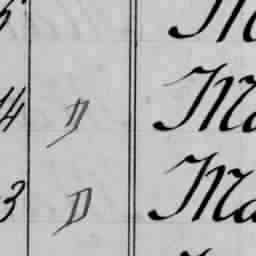 M
4 D Ma
3 D Ma